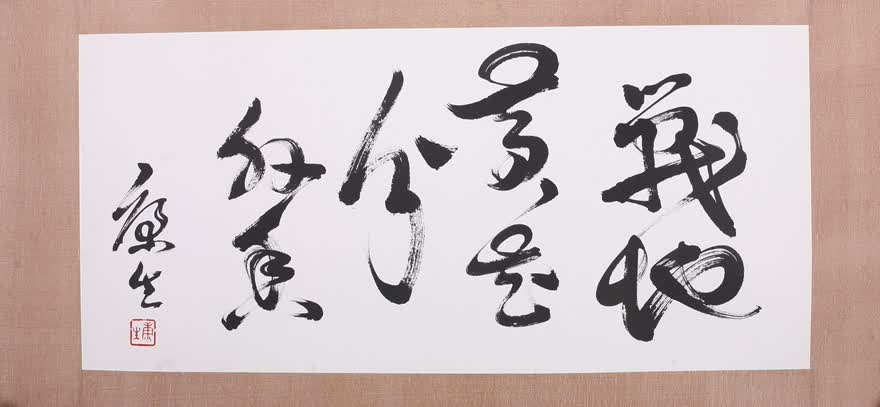 戰地
黃花
分
外香
康生
康生